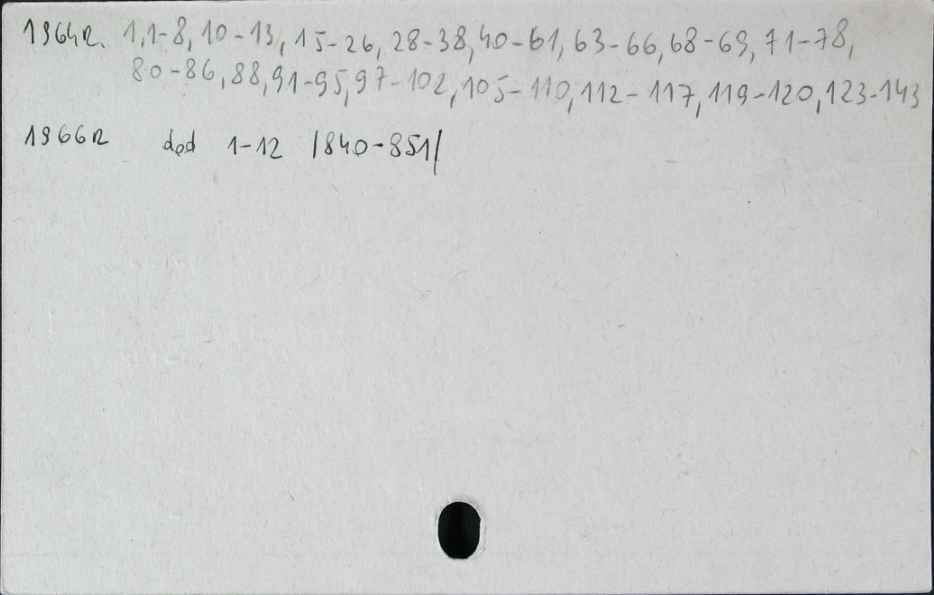 1964R. 1,1-8, 10-13, 15-26, 28-38, 40-61, 63-66, 68-69, 71-78,
80-86, 88, 91-95, 97-102, 105-110, 112-117, 119-120, 123-143
1966R dod 1-12 /840-851/